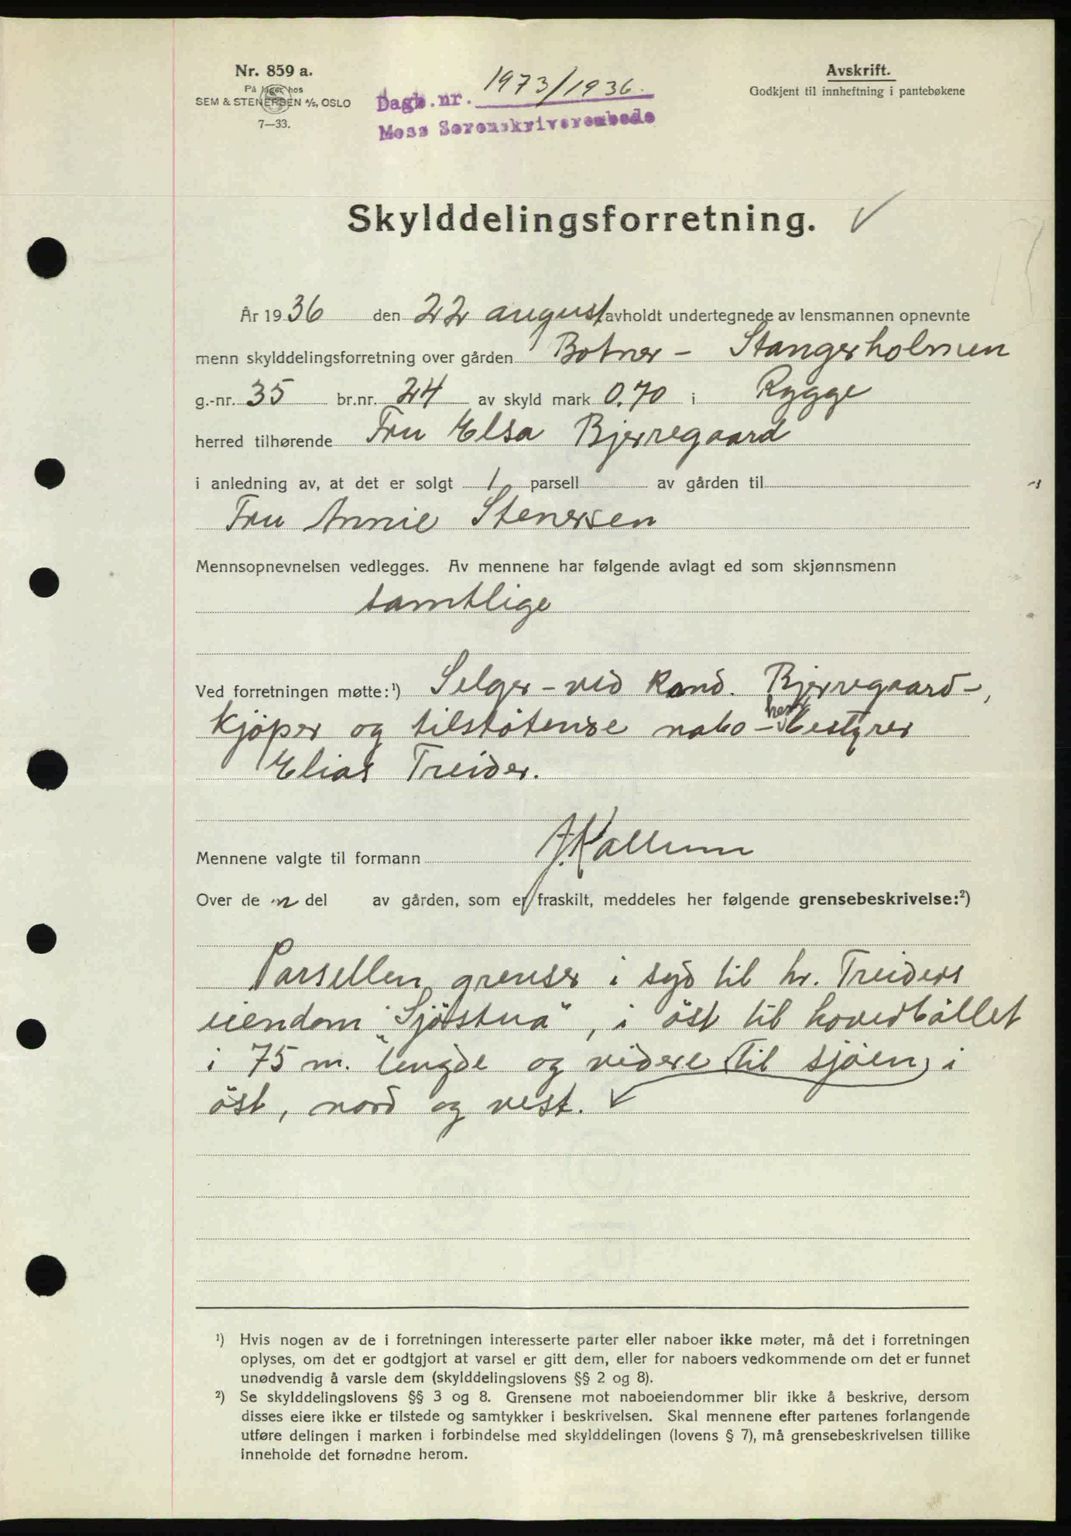 Nr. 859 a.
På lager hos
SEM & STENERSEN A/S, OSLO
7—33.
Dagb.nr. 1973/1936.
Moss Sorenskriverembede
Avskrift.
Godkjent til innheftning i pantebøkene
Skylddelingsforretning.
År 1936 den 22 august avholdt undertegnede av lensmannen opnevnte
menn skylddelingsforretning over gården Botner - Stangerholmen
g.-nr. 35 br.nr. 24 av skyld mark 0.70 i Rygge
herred tilhørende Fru Elsa Bjerregaard
i anledning av, at det er solgt 1 parsell av gården til
Fru Annie Stenersen
Mennsopnevnelsen vedlegges. Av mennene har følgende avlagt ed som skjønnsmenn
samtlige
Ved forretningen møtte:¹) Selger - ved Rand. Bjerregaard -,
kjöper og tilstötende nabo - bestyrer
Elias Treider.
Mennene valgte til formann J. Kallum
Over de n del av gården, som er fraskilt, meddeles her følgende grensebeskrivelse:²)
Parsellen grenser i syd til hr. Treiders
eiendom "Sjöstua", i öst til hovedbållet
i 75 m. lengde og videre til sjöen, i
öst, nord og vest.
¹) Hvis nogen av de i forretningen interesserte parter eller naboer ikke møter, må det i forretningen
oplyses, om det er godtgjort at varsel er gitt dem, eller for naboers vedkommende om det er funnet
unødvendig å varsle dem (skylddelingslovens §§ 2 og 8).
²) Se skylddelingslovens §§ 3 og 8. Grensene mot naboeiendommer blir ikke å beskrive, dersom
disses eiere ikke er tilstede og samtykker i beskrivelsen. Skal mennene efter partenes forlangende
utføre delingen i marken i forbindelse med skylddelingen (lovens § 7), må grensebeskrivelsen tillike
inneholde det fornødne herom.